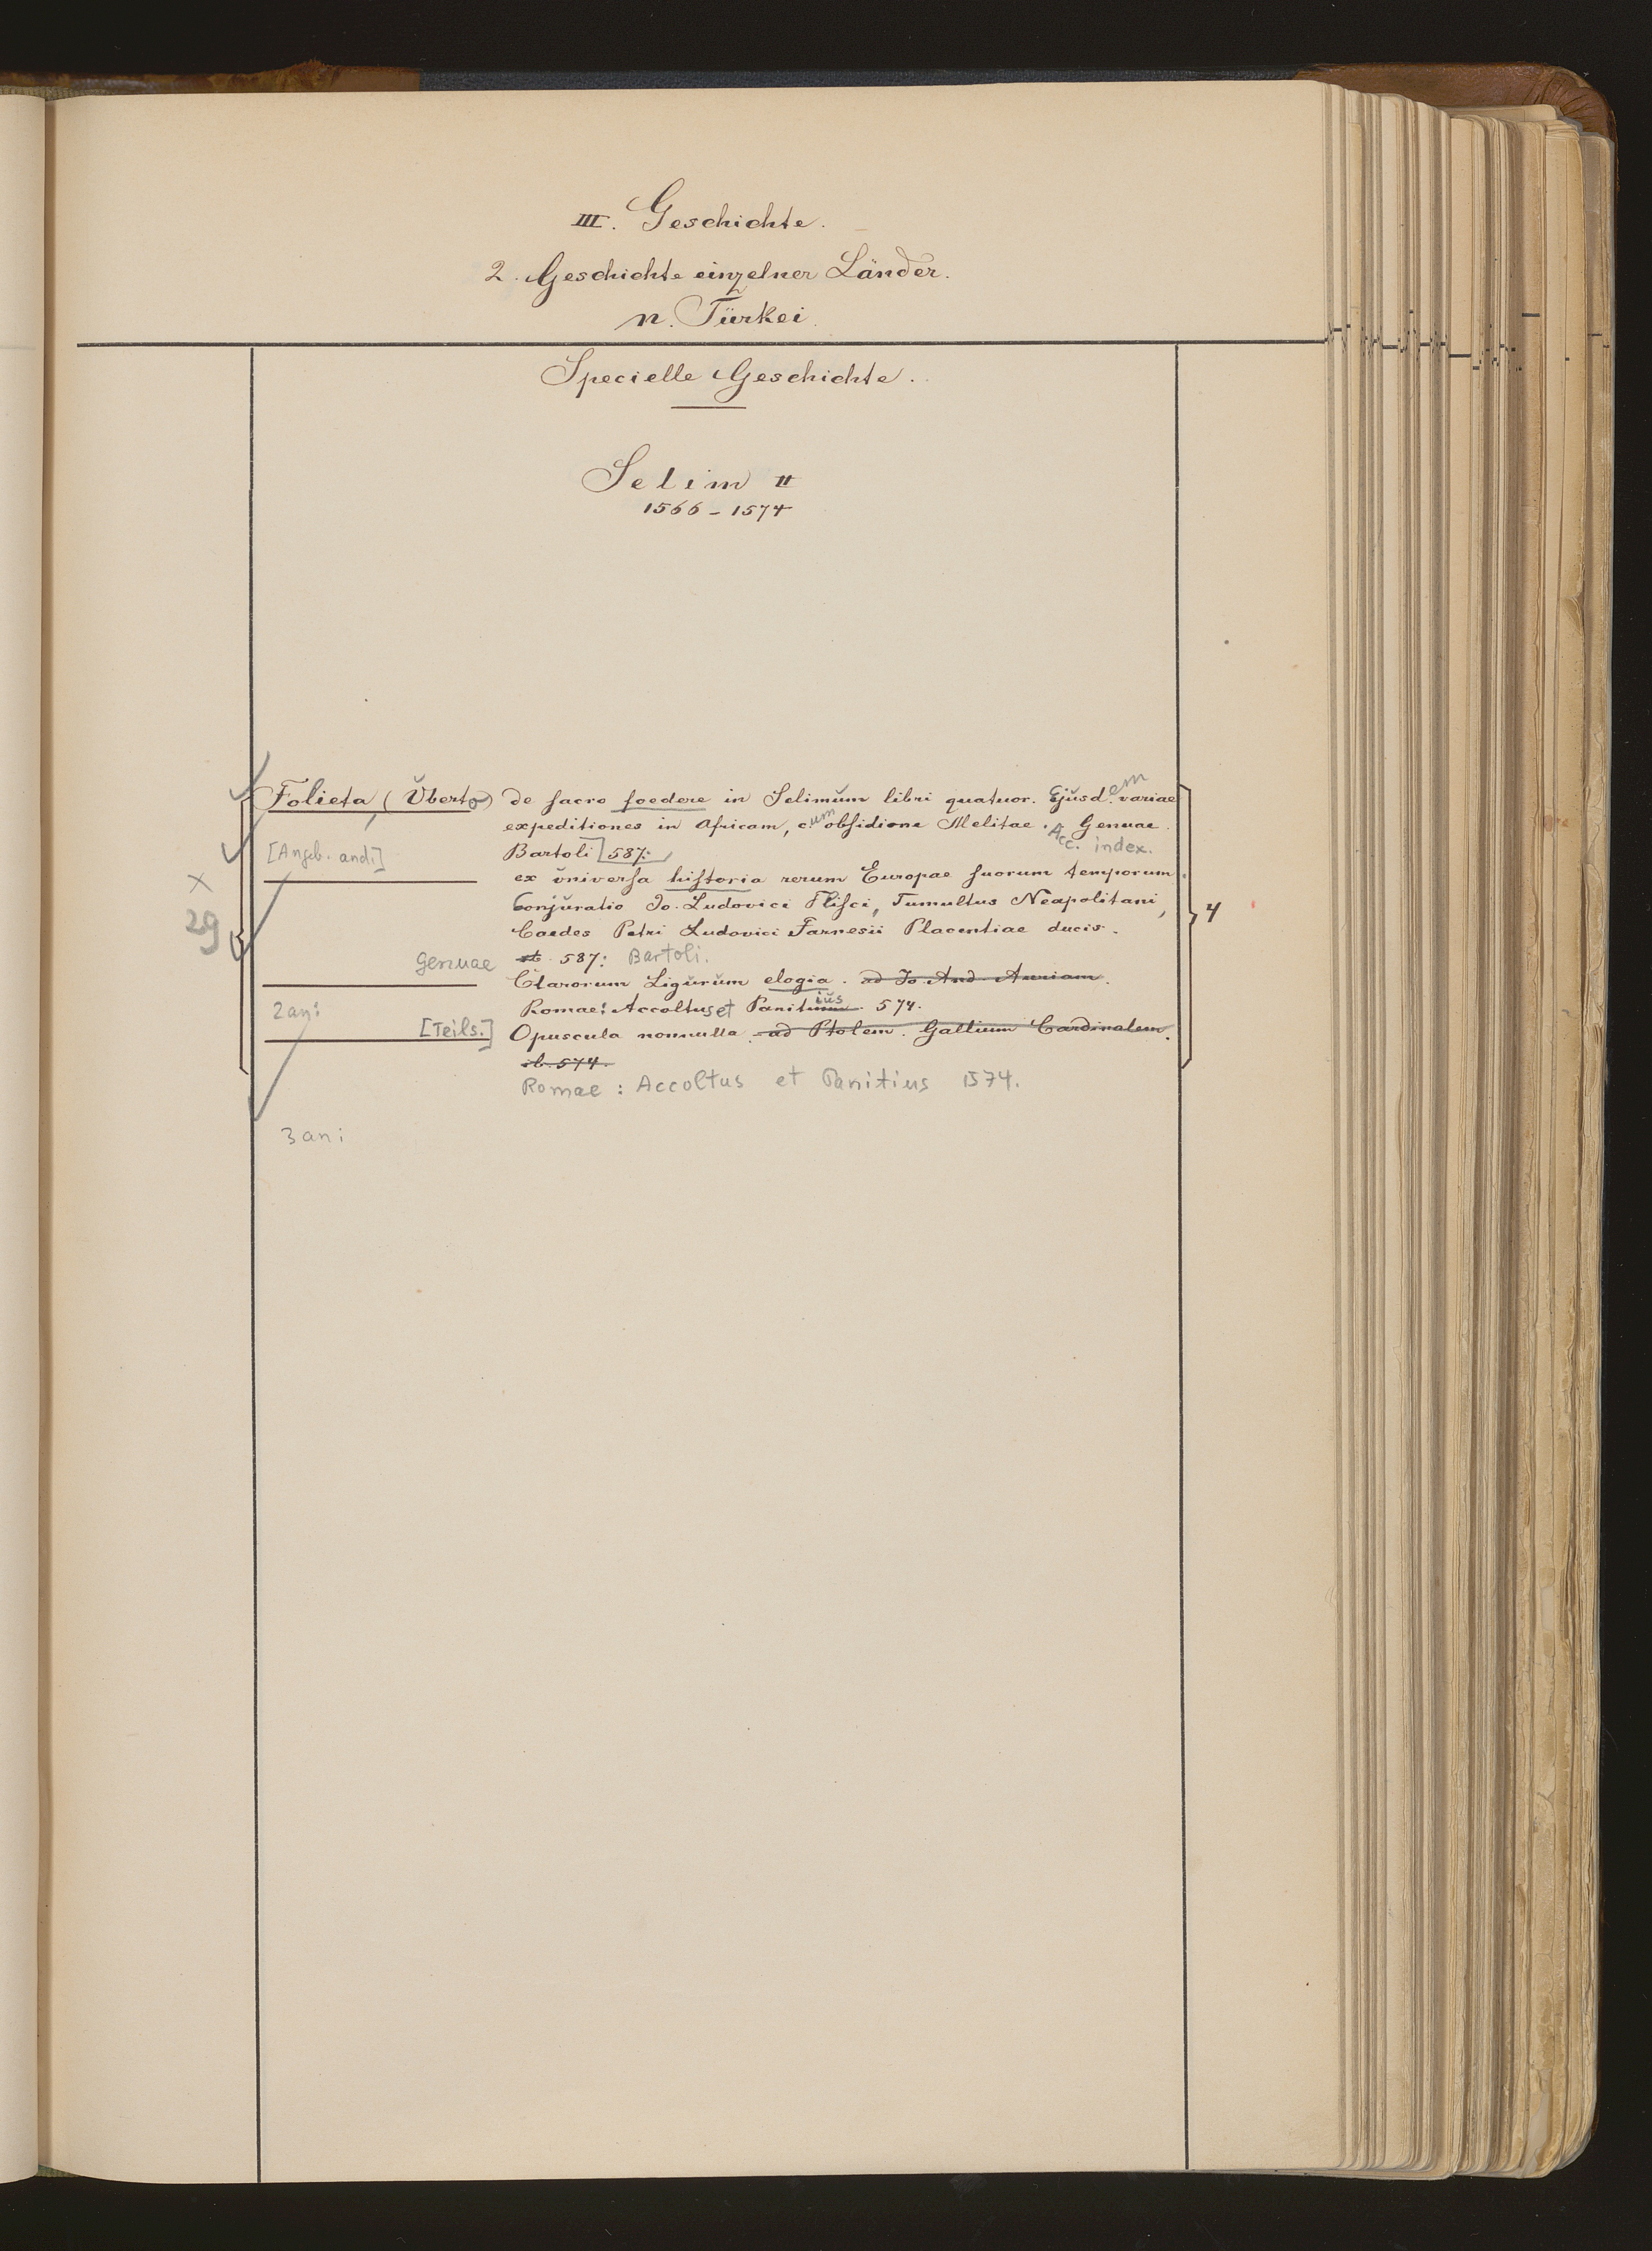 III. Geschichte.
2. Geschichte einzelner Länder.
n. Türkei.
Specielle Geschichte.
Selim II
1566 - 1574
Folieta, (Uberto) de sacro foedere in Selimum libri quatuor. Ejusdem variae
expeditiones in Africam, cum obsidione Melitae. Acc. index. Genuae.
[Angeb. and.] Bartoli 587:
ex universa historia rerum Europae suorum temporum.
Conjuratio Jo. Ludovici Flisci, Tumultus Neapolitani,
Caedes Petri Ludovici Farnesii Placentiae ducis.
Genuae ib 587: Bartoli.
Clarorum Ligurum elogia. ad Jo. And. Auriam.
2 an: Romae: Accoltus et Panitius 574.
[Teils.] Opuscula nonnulla. ad Ptolem. Gallium Cardinalem.
ib. 574.
Romae: Accoltus et Panitius 1574.
3 an:
×
29
4